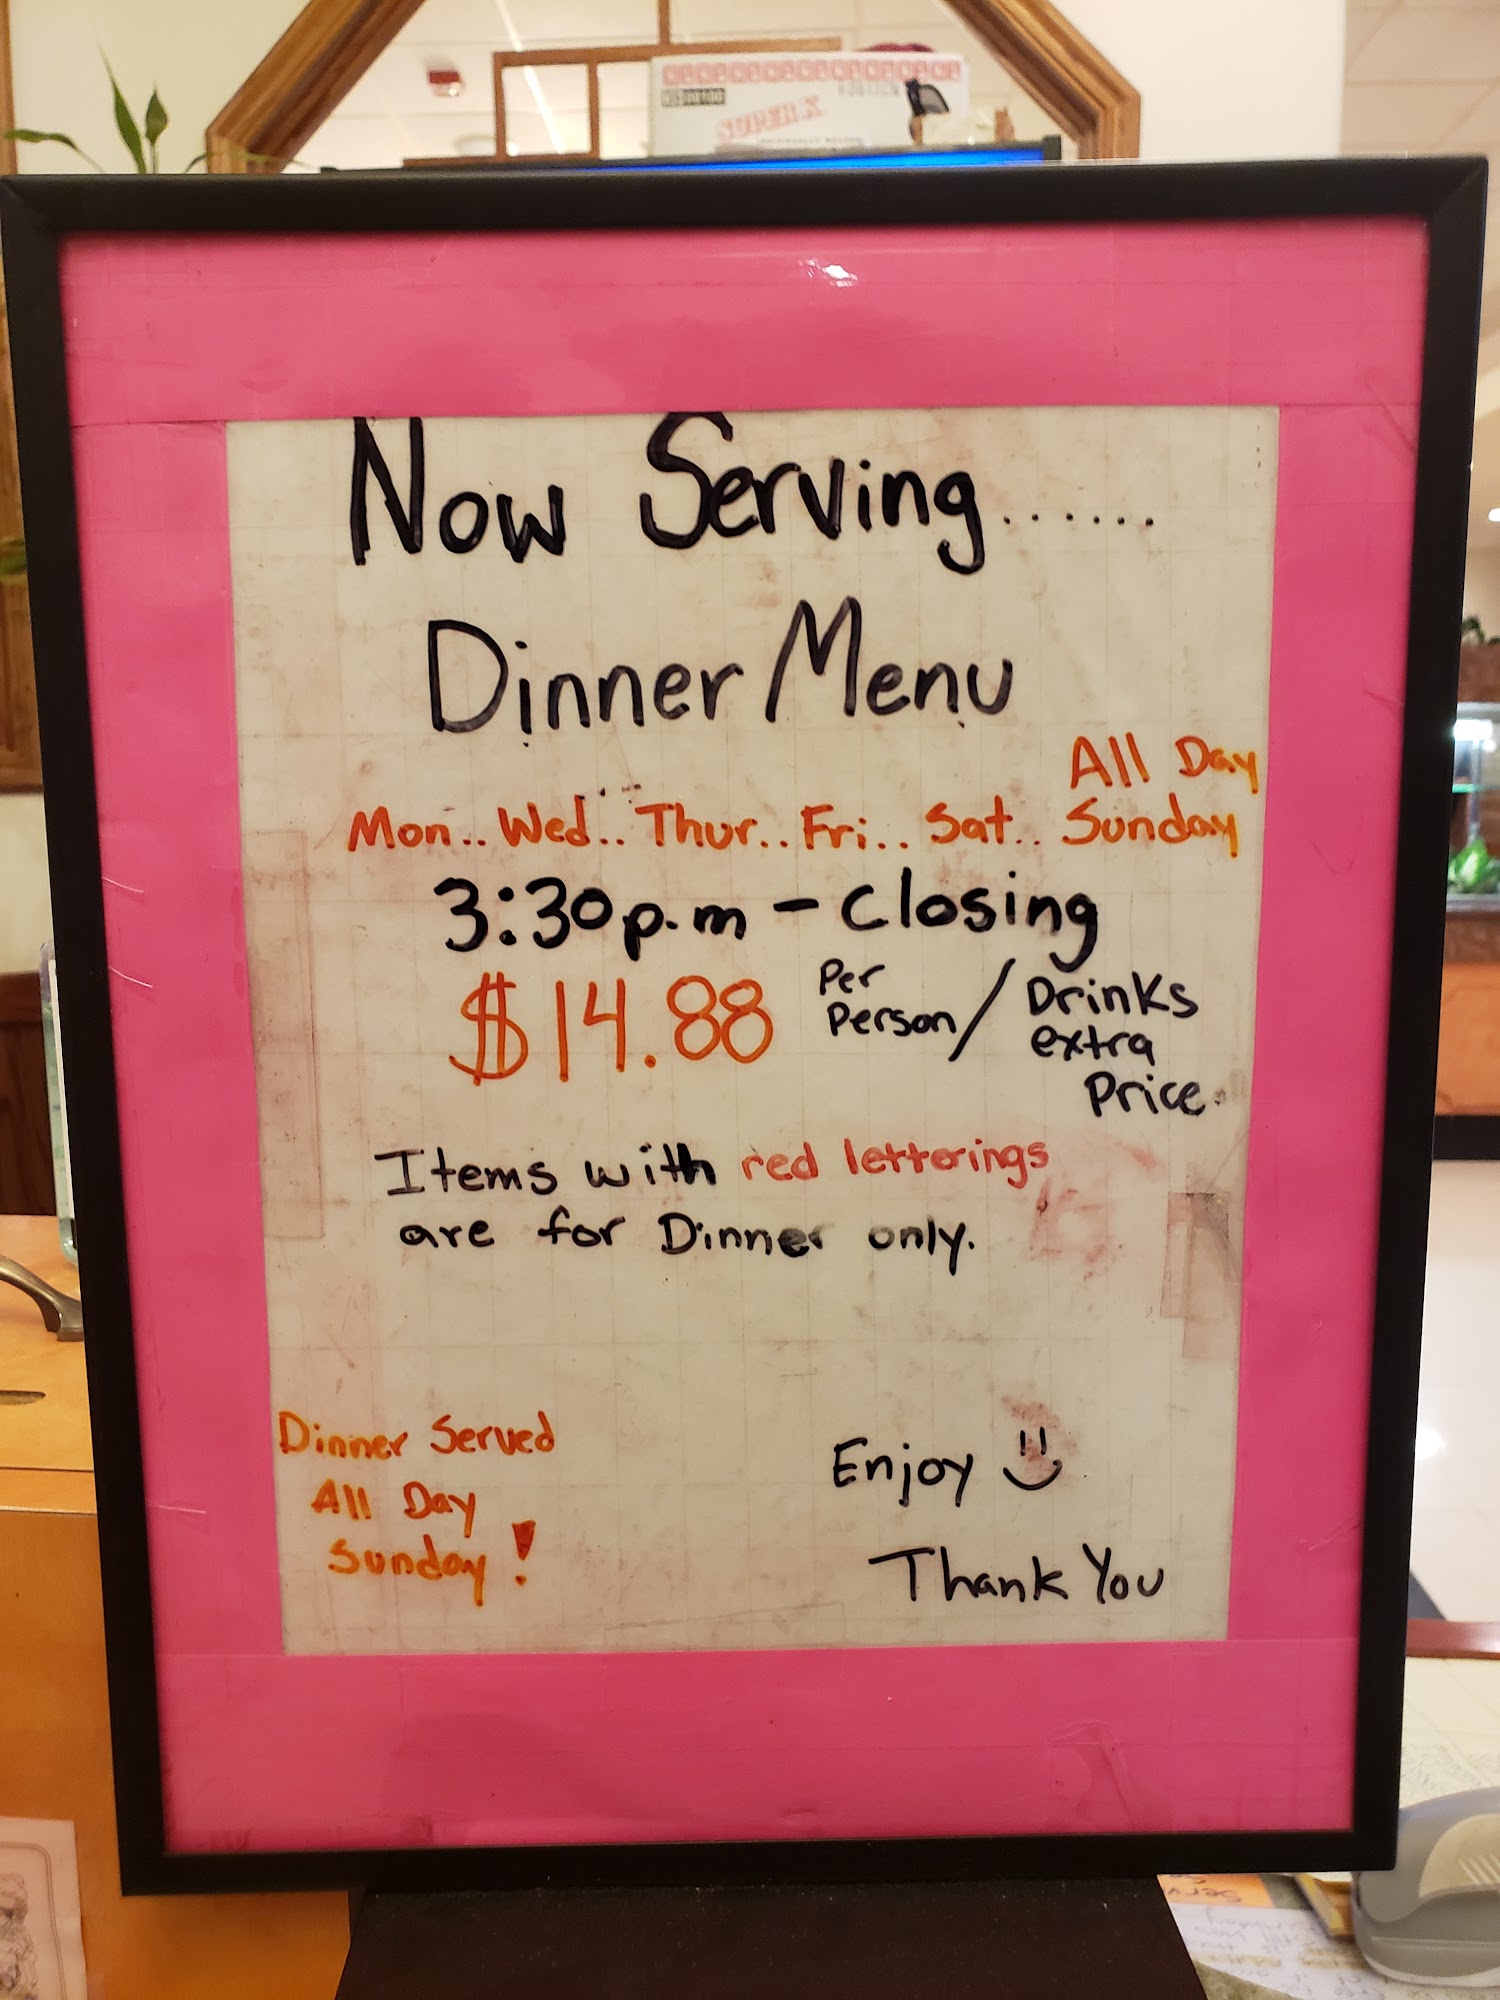 SUPER X
Now Serving.......
Dinner Menu
All Day
Mon.. Wed.. Thur.. Fri.. Sat.. Sunday
3:30p.m - Closing
$14.88 Per Person / Drinks extra Price.
Items with red letterings
are for Dinner only.
Dinner Served
All Day
Sunday!
Enjoy
Thank You